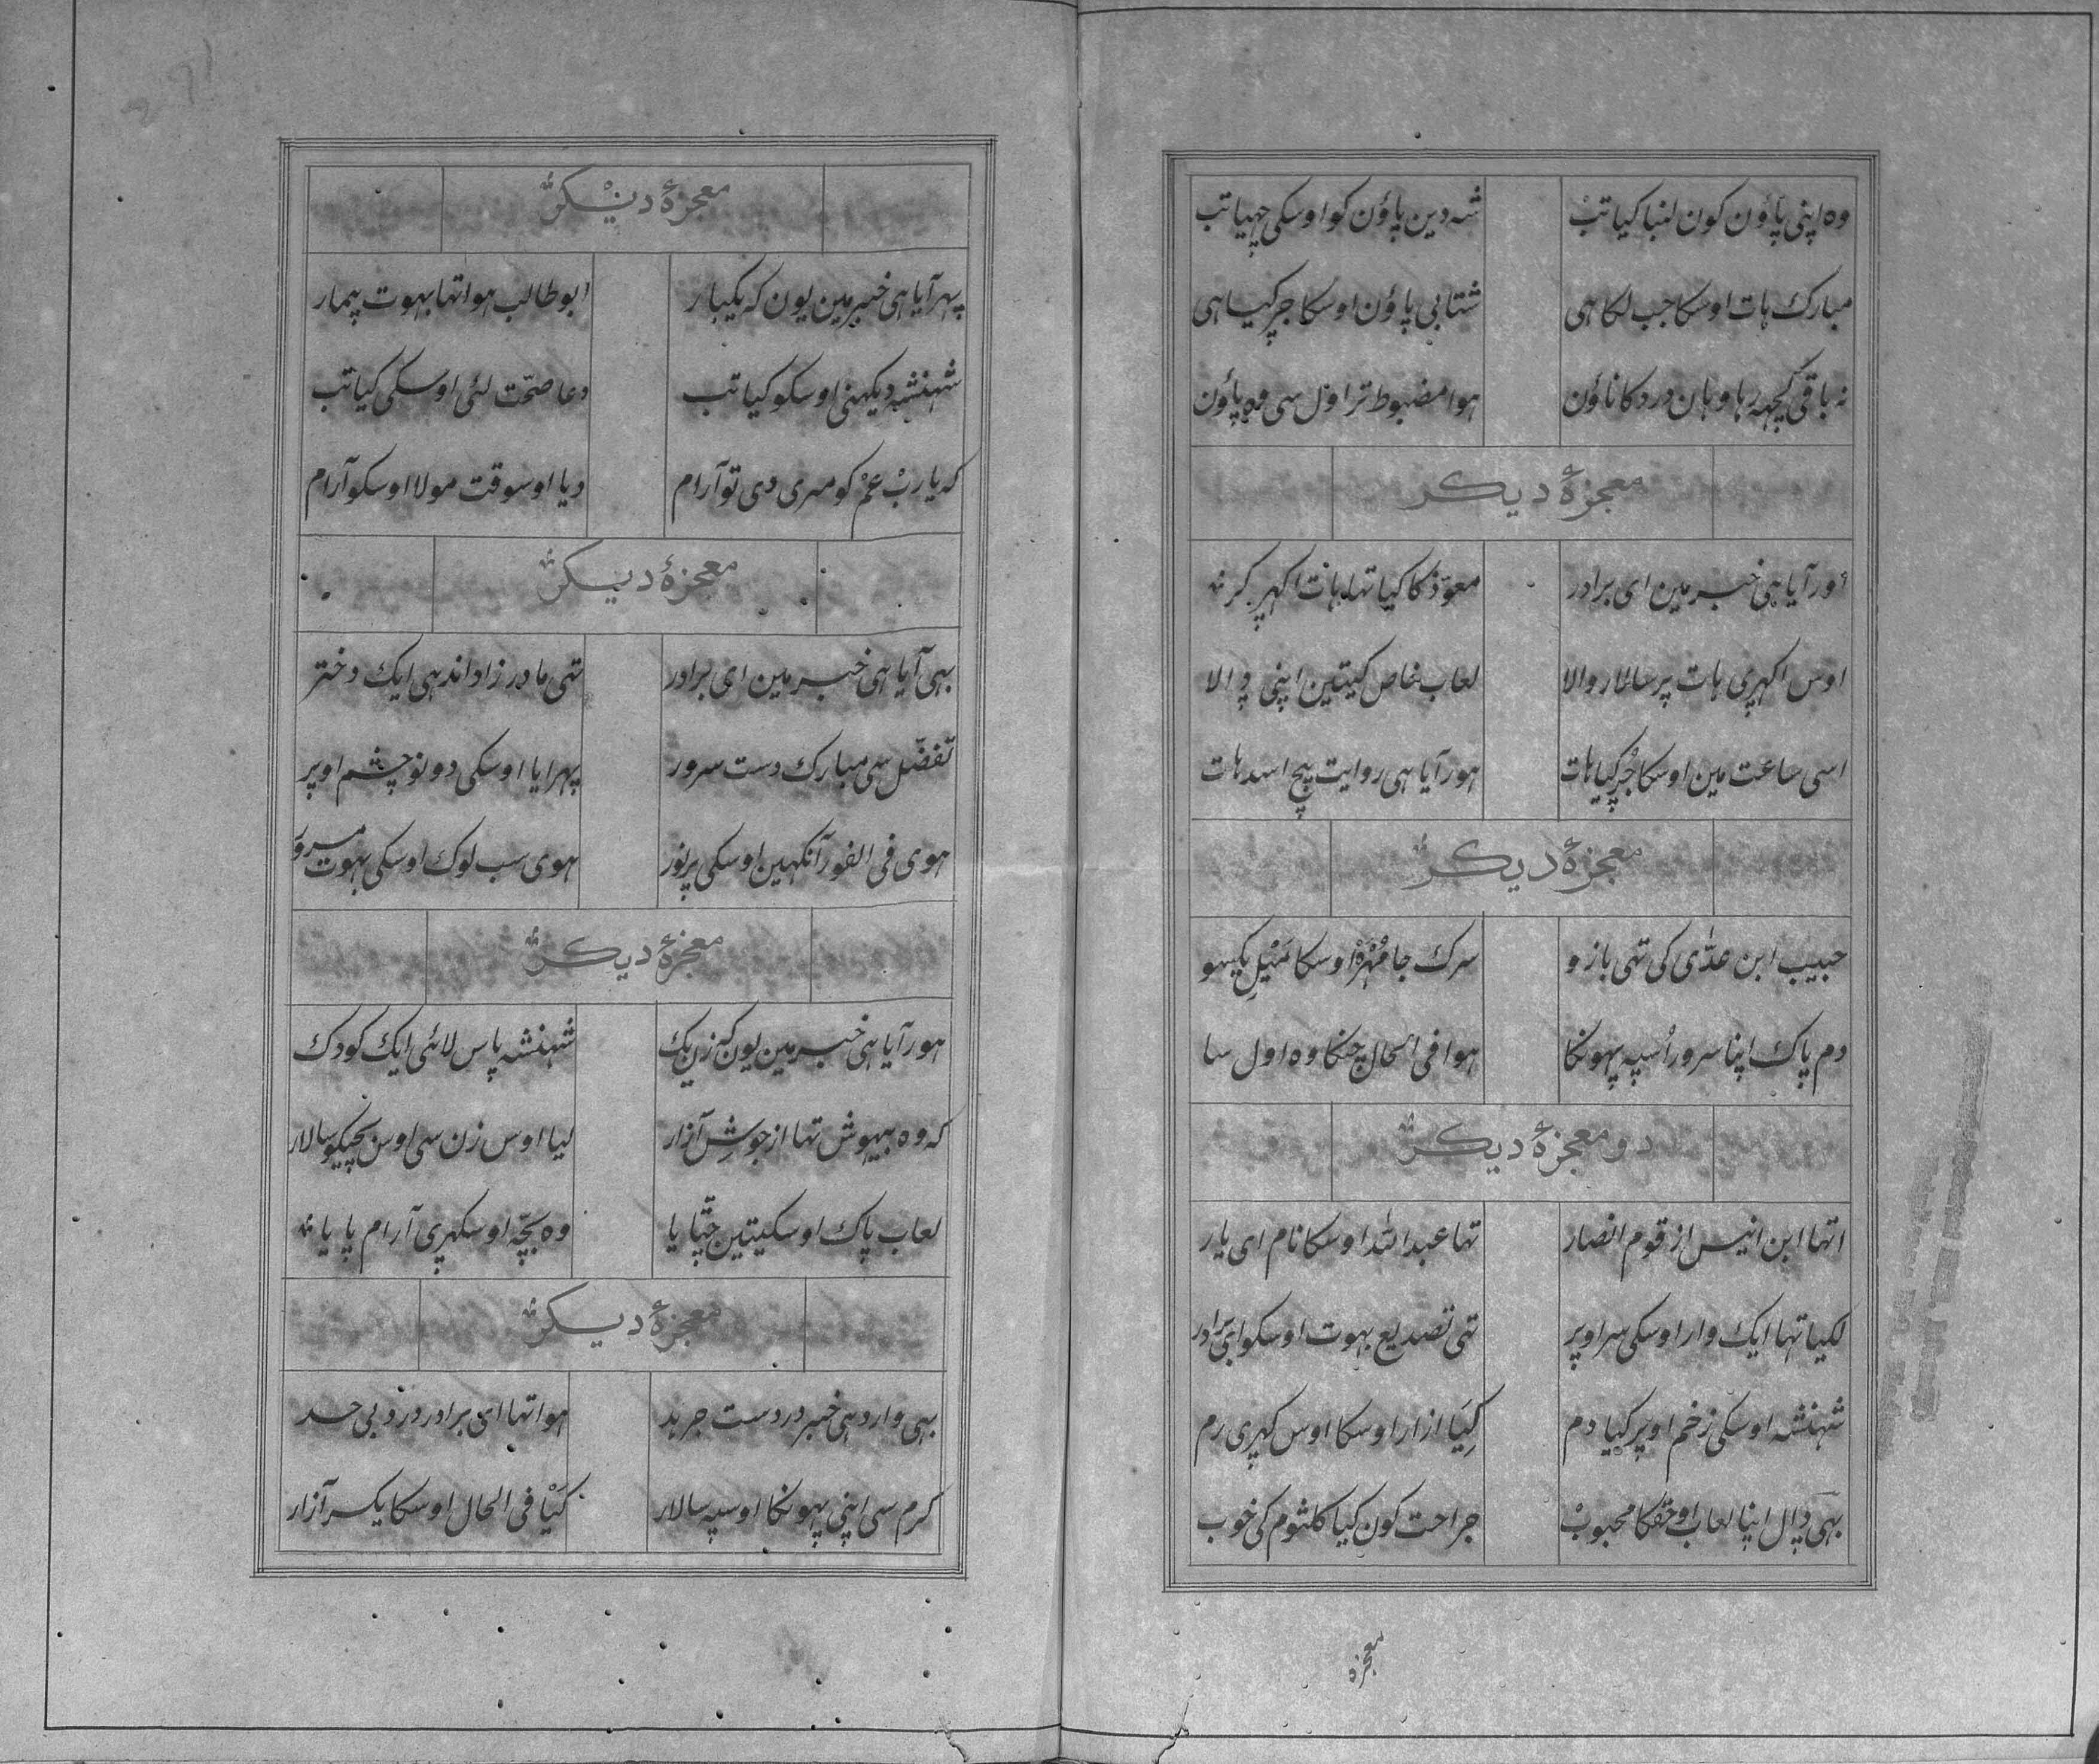 وه اپنی پاؤن کون لنبا کیا تب شه دین پاؤن کو اوسکی چهیا تب
مبارك هات اوسکا جب لکا هی شتابی پاؤن اوسکا جر کیا هی
نه باقی کچهه رها وهان درد کا ناؤن هوا مضبوط تر اول سی وه پاؤن
معجزۀ دیکر
اور آیا هی خبر مین ای برادر معوّذ کا کیا تها هات اکهر کر
اوس اکهری هات پر سالار والا لعاب خاص کیتین اپنی ڈالا
اسی ساعت مین اوسکا جُر کیا هات هور آیا هی روایت بیچ اسد هات
معجزۀ دیکر
حبیب ابن عدّی کی تهی بازو سرك جا مُهْرَهْ اوسکا مَیْلِ یکسو
دم پاك اپنا سرور اُسپه پهونکا هوا فی الحال چنکا وه اول سا
دو معجزۀ دیکر
اتها ابن انیس از قوم انصار تها عبد الله اوسکا نام ای یار
لکیا تها ایك وار اوسکی سر اوپر تهی تصدیع بهوت اوسکو ای برادر
شهنشه اوسکی زخم اوپر کیا دم کِیَا ازار اوسکا اوس کهری رم
بهی ڈال اپنا لعاب او حقکا محبوبْ جراحت کون کیا کلثوم کی خوب
معجزه
معجزۀ دیکر
پهر آیا هی خبر مین یون که یکبار ابو طالب هوا تها بهوت بیمار
شهنشه دیکهنی اوسکو کیا تب دعا صحّت لئی اوسکی کیا تب
که یا ربْ عمْ کو مری دی تو آرام دیا اوسوقت مولا اوسکو آرام
معجزۀ دیکر
بهی آیا هی خبر مین ای برادر تهی مادر زاد اندهی ایك دختر
تفضّل سی مبارك دست سرور پهرایا اوسکی دونو چشم اوپر
هوی فی الفور آنکهین اوسکی پرنور هوی سب لوك اوسکی بهوت مسرور
معجزۀ دیکر
هور آیا هی خبر مین یون که زن یك شهنشه پاس لائی ایك کودك
که وه بیهوش تها از جوشِ آزار لیا اوس زن سی اوس بچیکو سالار
لعاب پاك اوسکیتین چَٹایا وه بچّه اوسکهری آرام پایا
معجزۀ دیکر
بهی وارد هی خبر در دست جرهد هوا تها ای برادر درد بی حد
کرم سی اپنی پهونکا اوسپه سالار کَیَا فی الحال اوسکا یکسر آزار